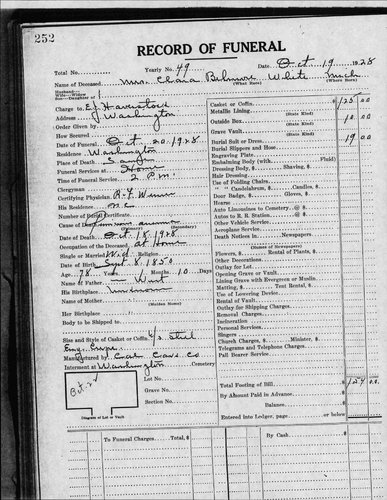 252
RECORD OF FUNERAL
Total No. Yearly No. 49 Date Oct 19 1928
Name of Deceased Mrs. Clara White
(What Born) (Where Born)
Husband—
Wife—Widow
Son—Daughter of
Charge to
Address Washington
Order Given by
How Secured
Date of Funeral Oct 20 1928
Residence Washington
Place of Death
Funeral Services at Home
Time of Funeral Service 2 P.M.
Clergyman
Certifying Physician
His Residence
Number of Burial Certificate
Cause of Death
(Secondary)
Date of Death Oct 18, 1928
Occupation of the Deceased at Home
Single or Married Wid Religion
Date of Birth Sept 8 1850
Age 78 Years 1 Months 10 Days
Name of Father
His Birthplace
Name of Mother
(Maiden Name)
Her Birthplace
Body to be Shipped to
Size and Style of Casket or Coffin
Manufactured by
Interment at Washington Cemetery
Lot No.
Grave No.
Section No.
Diagram of Lot or Vault
Casket or Coffin 125 00
Metallic Lining
(State Kind)
Outside Box 10 00
(State Kind)
Grave Vault
Burial Suit or Dress 19 00
Burial Slippers and Hose
Engraving Plate
Embalming Body (with Fluid)
Dressing Body, $ Shaving, $
Hair Dressing
Use of Folding Chairs
" " Candelabrum, $ Candles, $
Door Badge, $ Gloves, $
Hearse
Autos Limousines to Cemetery @ $
Autos to R. R. Station @ $
Other Vehicle Service
Aeroplane Service
Death Notices in Newspapers
(Names of Newspapers)
Flowers, $ Rental of Plants, $
Other Decorations
Outlay for Lot
Opening Grave or Vault
Lining Grave with Evergreen or Muslin
Matting, $ Tent Rental, $
Use of Lowering Device
Rental of Vault
Outlay for Shipping Charges
Removal Charges
Incineration
Personal Services
Singers
Church Charges, $ Minister, $
Telegrams and Telephone Charges
Pall Bearer Service
Total Footing of Bill
By Amount Paid in Advance
Balance
Entered into Ledger, page or below
To Funeral Charges Total, $ By Cash $